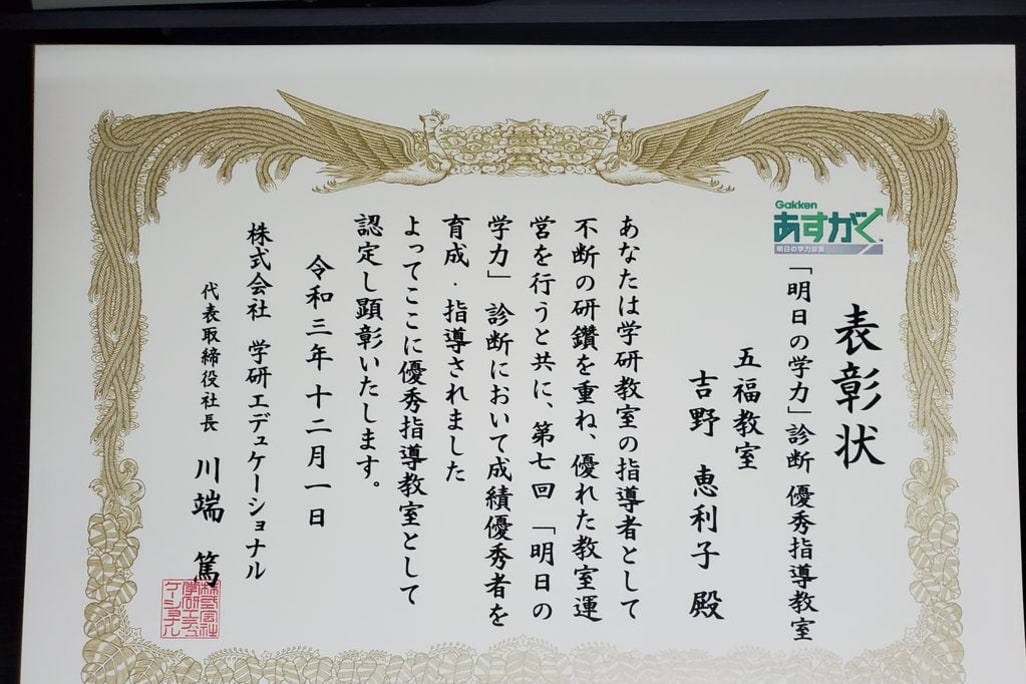 表彰状
Gakken
あすがく
明日の学力診断
「明日の学力」診断 優秀指導教室
五福教室
吉野 恵利子 殿
あなたは学研教室の指導者として
不断の研鑽を重ね、優れた教室運
営を行うと共に、第七回「明日の
学力」診断において成績優秀者を
育成・指導されました
よってここに優秀指導教室として
認定し顕彰いたします。
令和三年 十二月一日
株式会社 学研エデュケーショナル
代表取締役社長 川端 篤
株式会社
学研エデュ
ケーショナル